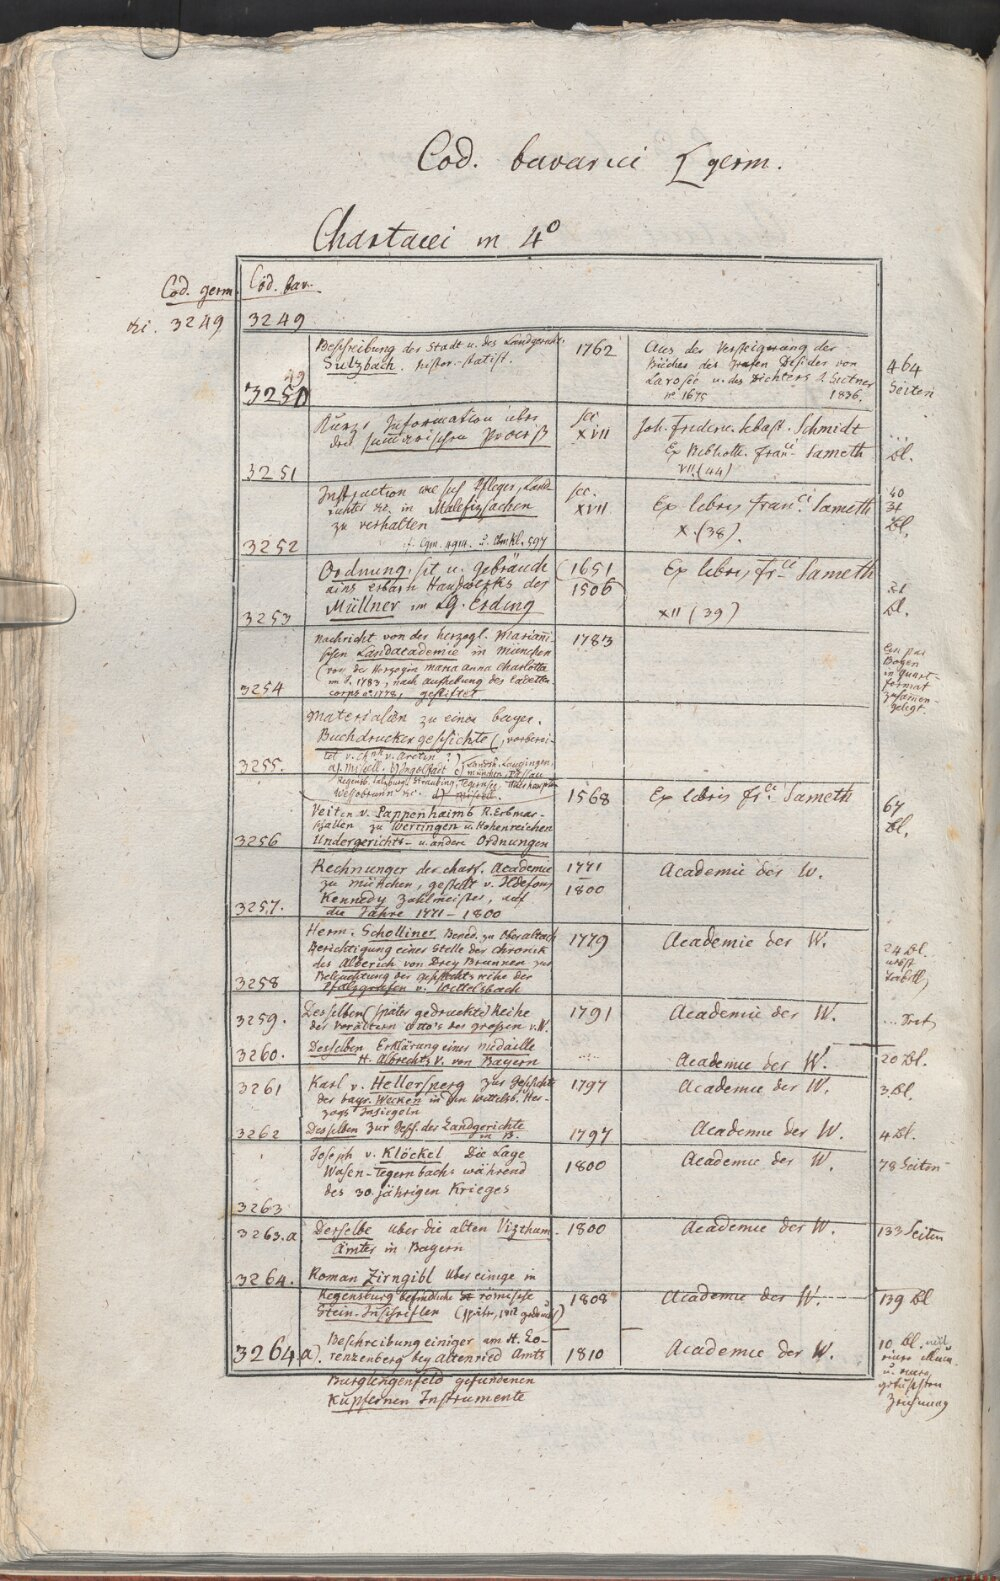 Cod. bavarici [ germ.
Chartacei in 4°
Cod. germ. Cod. bav.
3249 3249
Beschreibung der Stadt u. des Landgericht.
Sulzbach. histor.-statist.
1762
Aus der Versteigerung der
Bücher des Grafen Desider von
Larosée u. des Dichters J. Seitner
n° 1675 1836.
464
Seiten
49
3250
Kurze Information über
den summarischen Proceß
sec.
XVII
Joh. Frideric. Schmidt
Ex Biblioth. Franci Sameth
VII. (44)
Bl.
3251
Instruction wie sich Pfleger, Land
richter etc. in Malefizsachen
zu verhalten
cf. Cgm. 4914. 597
sec.
XVII
Ex libris Franci Sameth
X. (38).
40
Bl.
3252
Ordnung, sit u. gebräuch
ains erbarn Handwerks der
Müllner im LG. Erding
(1651
1506)
Ex libris Frci Sameth
XII (39)
21
Bl.
3253
Nachricht von der herzogl. Mariani-
schen Landacademie in München
(von der Herzogin Maria Anna Charlotte
im J. 1783, nach aufhebung des Cadetten
corps a° 1778, gestiftet
1783
Ein paar
Bogen
in Quart-
format
zusamen-
gelegt.
3254
Materialien zu einer bayer.
Buchdruckergeschichte (, vorberei-
tet v. Chph v. Aretin?
a) Miscell. b) Ingolstadt c) Landsh. Laugingen,
München, Passau
Regensb. Salzburg, Straubing, Tegernsee,
Wessobrunn etc. d)
3255.
Veiten v. Pappenhaimb R. Erbmar-
schallen zu Wertingen u. Hohenreichen
Undergerichts- u. andere Ordnungen
1568
Ex libris Frci Sameth
67
Bl.
3256
Rechnungen der churf. Academie
zu München, gestellt v. Ildefons
Kennedy Zahlmeister, auf
die Jahre 1771 – 1800
1771
–
1800
Academie der W.
3257.
Herm. Scholliner Bened. zu Oberaltach
Berichtigung einer Stelle der Chronik
des Alberich von Drey Brunnen zur
Beleuchtung der geschlechtsreihe der
Pfalzgrafen v. Wittelsbach
1779
Academie der W.
24 Bl.
nebst
3258
Desselben (später gedruckte) Reihe
der Vorältern Otto's des großen v. W.
1791
Academie der W.
3259.
Desselben Erklärung einer Medaille
H. Albrechts V. von Bayern
Academie der W.
20 Bl.
3260.
3261
Karl v. Hellersperg zur Geschicht
der bayr. Wecken in den Wittelsb. Her-
zogs Insiegeln
1797
Academie der W.
3 Bl.
3262
Desselben zur Gesch. der Landgerichte
in B.
1797
Academie der W.
4 Bl.
Joseph v. Klöckel Die Lage
Wasen-Tegernbachs während
des 30 jährigen Krieges
1800
Academie der W.
78 Seiten
3263
3263.a
Derselbe über die alten Vizthum-
Ämter in Bayern
1800
Academie der W.
133 Seiten
3264.
Roman Zirngibl über einige in
Regensburg befindliche römische
Stein-Inschriften
1808
Academie der W.
139 Bl
3264.a).
Beschreibung einiger am H. Lo-
renzenberg bey Altenried Amts
Burglengenfeld gefundenen
kupfernen Instrumente
1810
Academie der W.
10 Bl. mit
einer
u. einer
Zeichnung